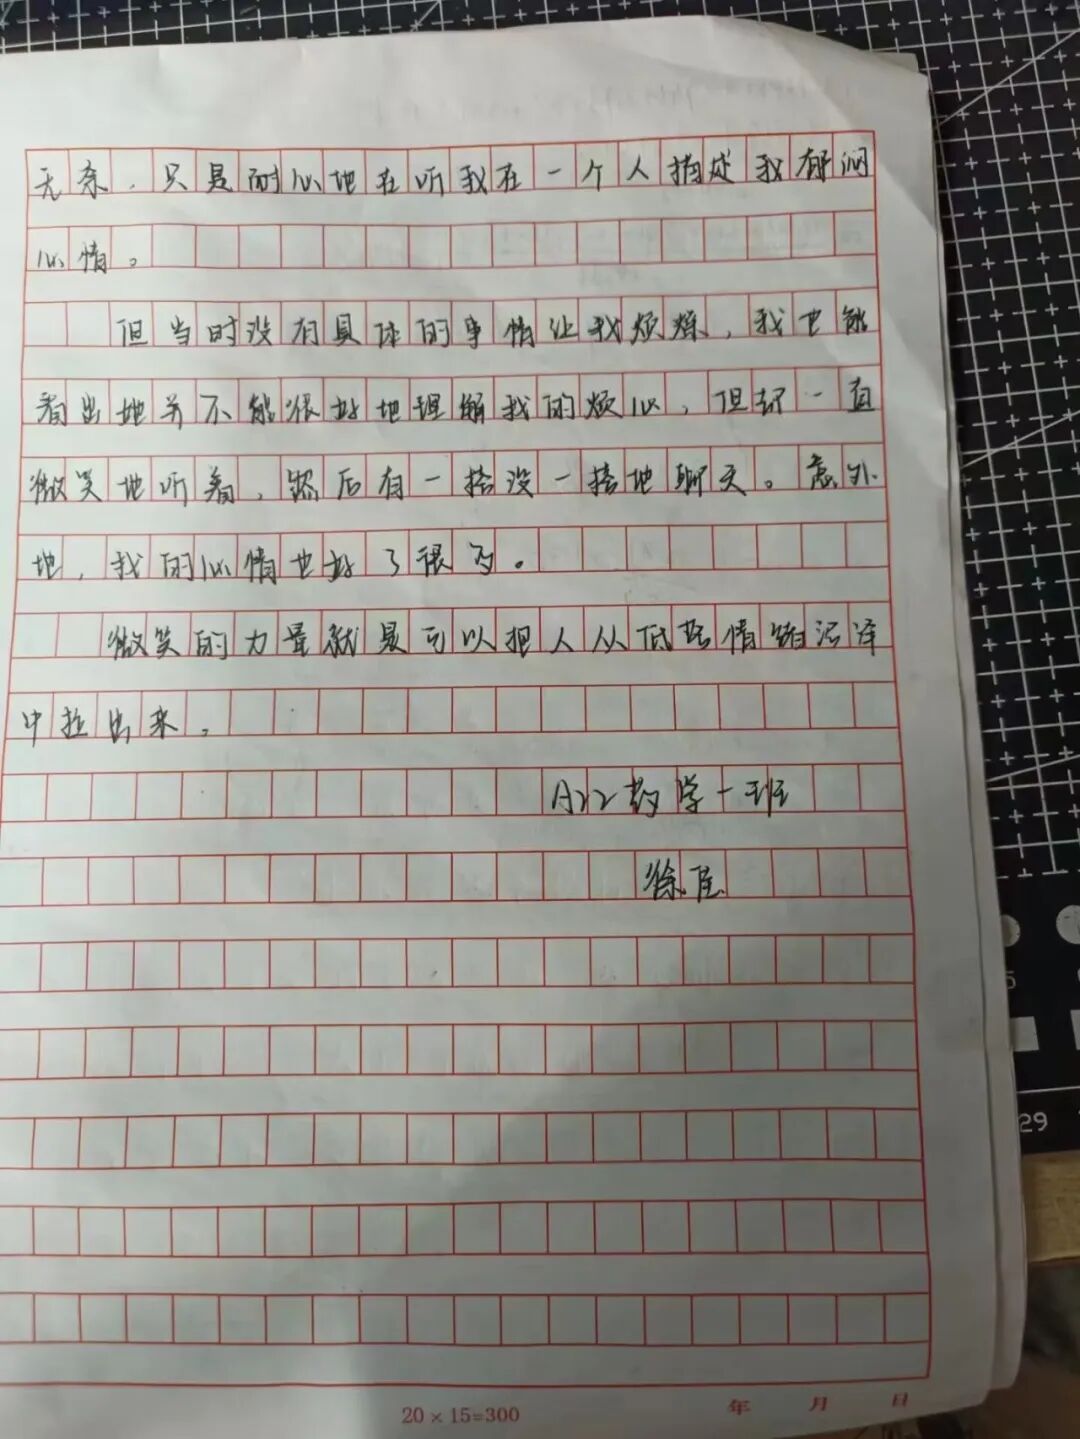 无奈，只是耐心地在听我在一个人描述我郁闷
心情。
但当时没有具体的事情让我烦燥，我也能
看出她并不能很好地理解我的烦心，但却一直
微笑地听着，然后有一搭没一搭地聊天。意外
地，我的心情也好了很多。
微笑的力量就是可以把人从低落情绪沼泽
中拉出来。
A22药学一班
徐
20×15=300
年 月 日
29